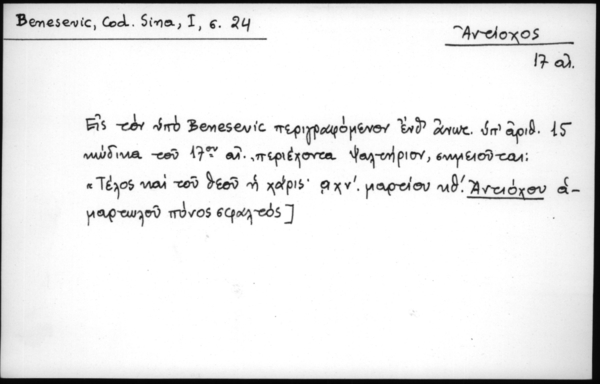 Benesevic, Cod. Sina, I, σ. 24
Ἀντίοχος
17 αἰ.
Εἰς τὸν ὑπὸ Benesevic περιγραφόμενον ἔνθ' ἄνωτ. ὑπ' ἀριθ. 15
κώδικα τοῦ 17ου αἰ., περιέχοντα ψαλτήριον, σημειοῦται:
«Τέλος καὶ τοῦ θεοῦ ἡ χάρις· ͵αχν΄. μαρτίου κθ΄. Ἀντιόχου ἁ-
μαρτωλοῦ πόνος σφαλτός]